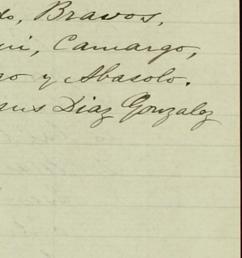 do, Bravos,
ui, Camargo,
go y Abasolo.
sus Diaz Gonzalez